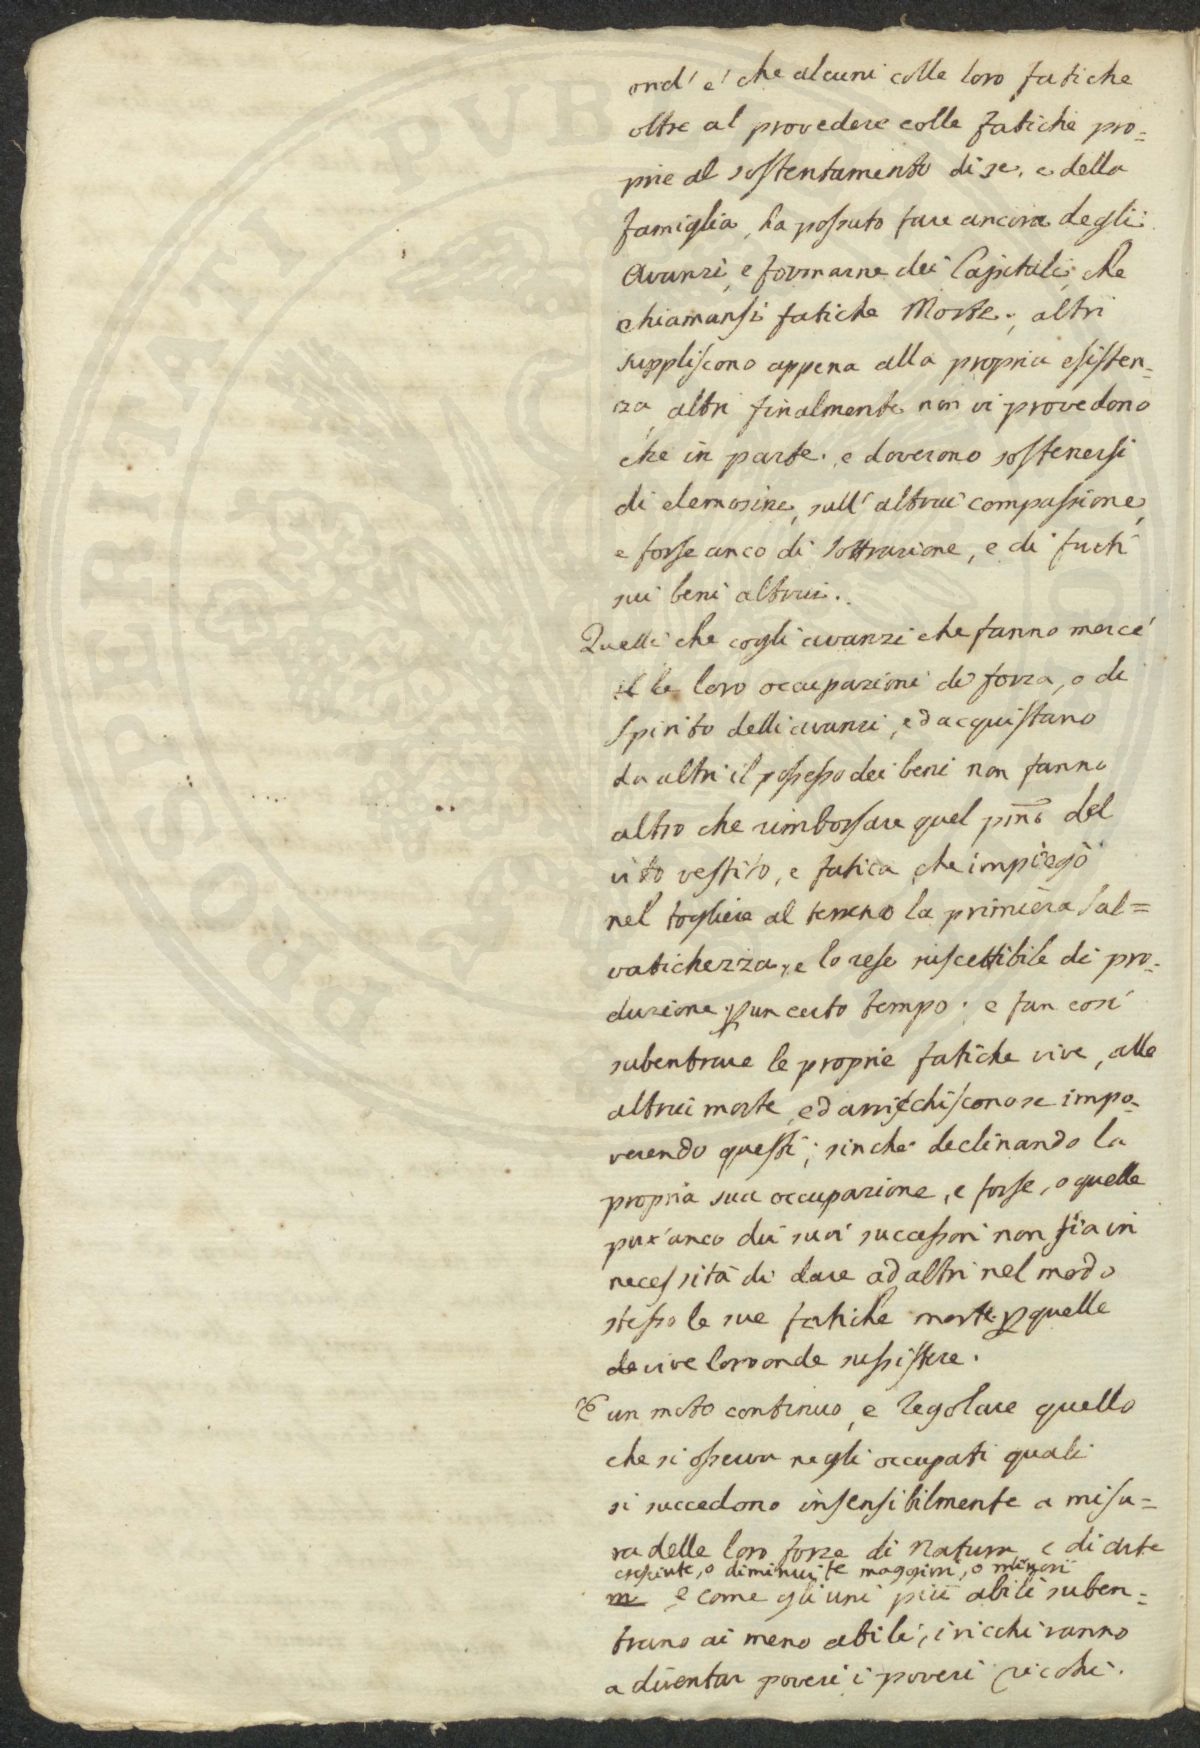 ond' e' che alcuni colle loro fatiche
oltre al provedere colle fatiche pro=
prie al sostentamento di se, e della
famiglia, ha possuto fare ancora degli
avanzi, e formarne dei Capitali, che
chiamansi fatiche Morte., altri
suppliscono appena alla propria esisten=
za, altri finalmente non vi provedono
che in parte. e doverono sostenersi
di elemosine, sull' altrui compassione,
e forse anco di sottrazione, e di furti
sui beni altrui.
Quelli che cogli avanzi che fanno mercé
le loro occupazioni di forza, o di
spirito delli avanzi, ed acquistano
da altri il possesso dei beni non fanno
altro che rimborsare quel pmõ del
vito vestito, e fatica, che impiegò
nel togliere al terreno la primiera sal=
vatichezza, e lo rese suscettibile di pro=
duzione p un certo tempo; e fan così
subentrare le proprie fatiche vive, alle
altrui morte, ed arrichiscono se impo=
verendo questi; sinche declinando la
propria sua occupazione, e forse, o quella
pur' anco dei suoi successori non sia in
necessità di dare ad altri nel modo
stesso le sue fatiche morte p quelle
vive loro onde sussistere.
E' un moto continuo, e regolare quello
che si osserva negli occupati quali
si succedono insensibilmente a misu=
ra delle loro forze di natura, e di arte
cresciute, o diminuite maggiori, o minori
e come gli uni più abili suben=
trano ai meno abili, i ricchi vanno
a diventar poveri i poveri ricchi.